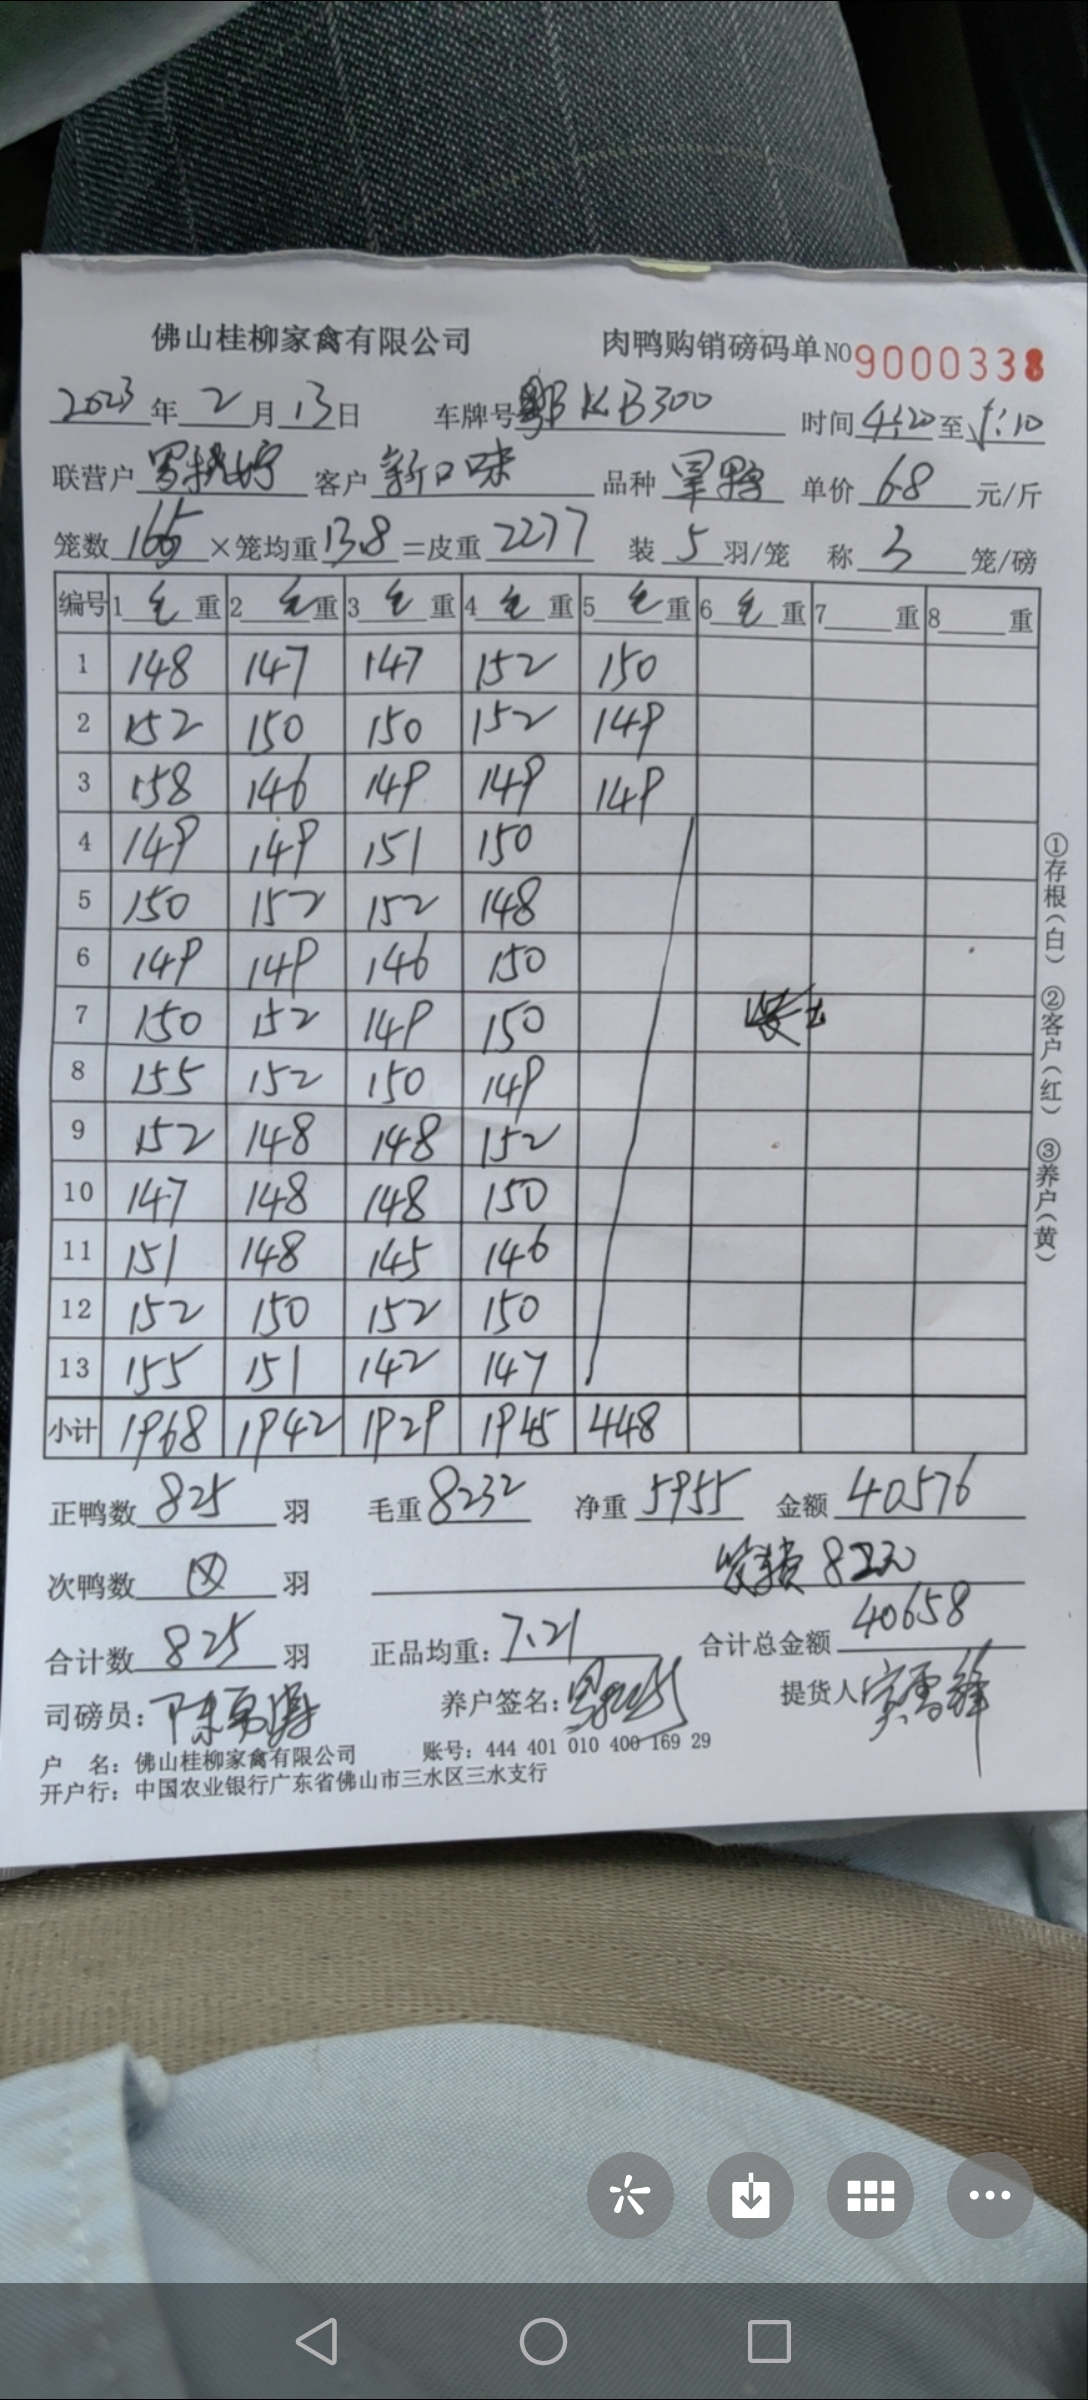 佛山桂柳家禽有限公司 肉鸭购销磅码单 NO 9000338
2023年2月13日 车牌号鄂KB300 时间4:20至5:10
联营户 客户新口味 品种 单价6.8元/斤
笼数165×笼均重13.8=皮重2277 装5羽/笼 称3笼/磅
编号 1毛重 2毛重 3毛重 4毛重 5毛重 6毛重 7重 8重
1 148 147 147 152 150
2 152 150 150 152 149
3 158 146 149 149 149
4 149 149 151 150
5 150 152 152 148
6 149 149 146 150
7 150 152 149 150
8 155 152 150 149
9 152 148 148 152
10 147 148 148 150
11 151 148 145 146
12 152 150 152 150
13 155 151 142 147
小计 1968 1942 1929 1945 448
正鸭数825羽 毛重8232 净重5955 金额40576
次鸭数 羽
合计数825羽 正品均重:7.21 合计总金额40658
司磅员: 养户签名: 提货人
户 名:佛山桂柳家禽有限公司 账号:444 401 010 400 169 29
开户行:中国农业银行广东省佛山市三水区三水支行
①存根(白) ②客户(红) ③养户(黄)